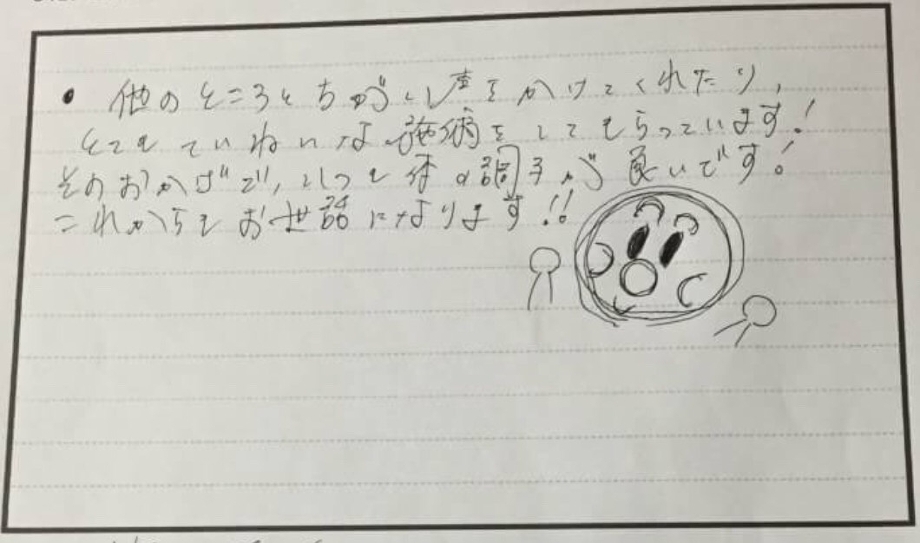 • 他のところとちがい声をかけてくれたり、
とてもていねいな施術をしてもらっています!
そのおかげで、いつも体の調子が良いです!
これからもお世話になります!!